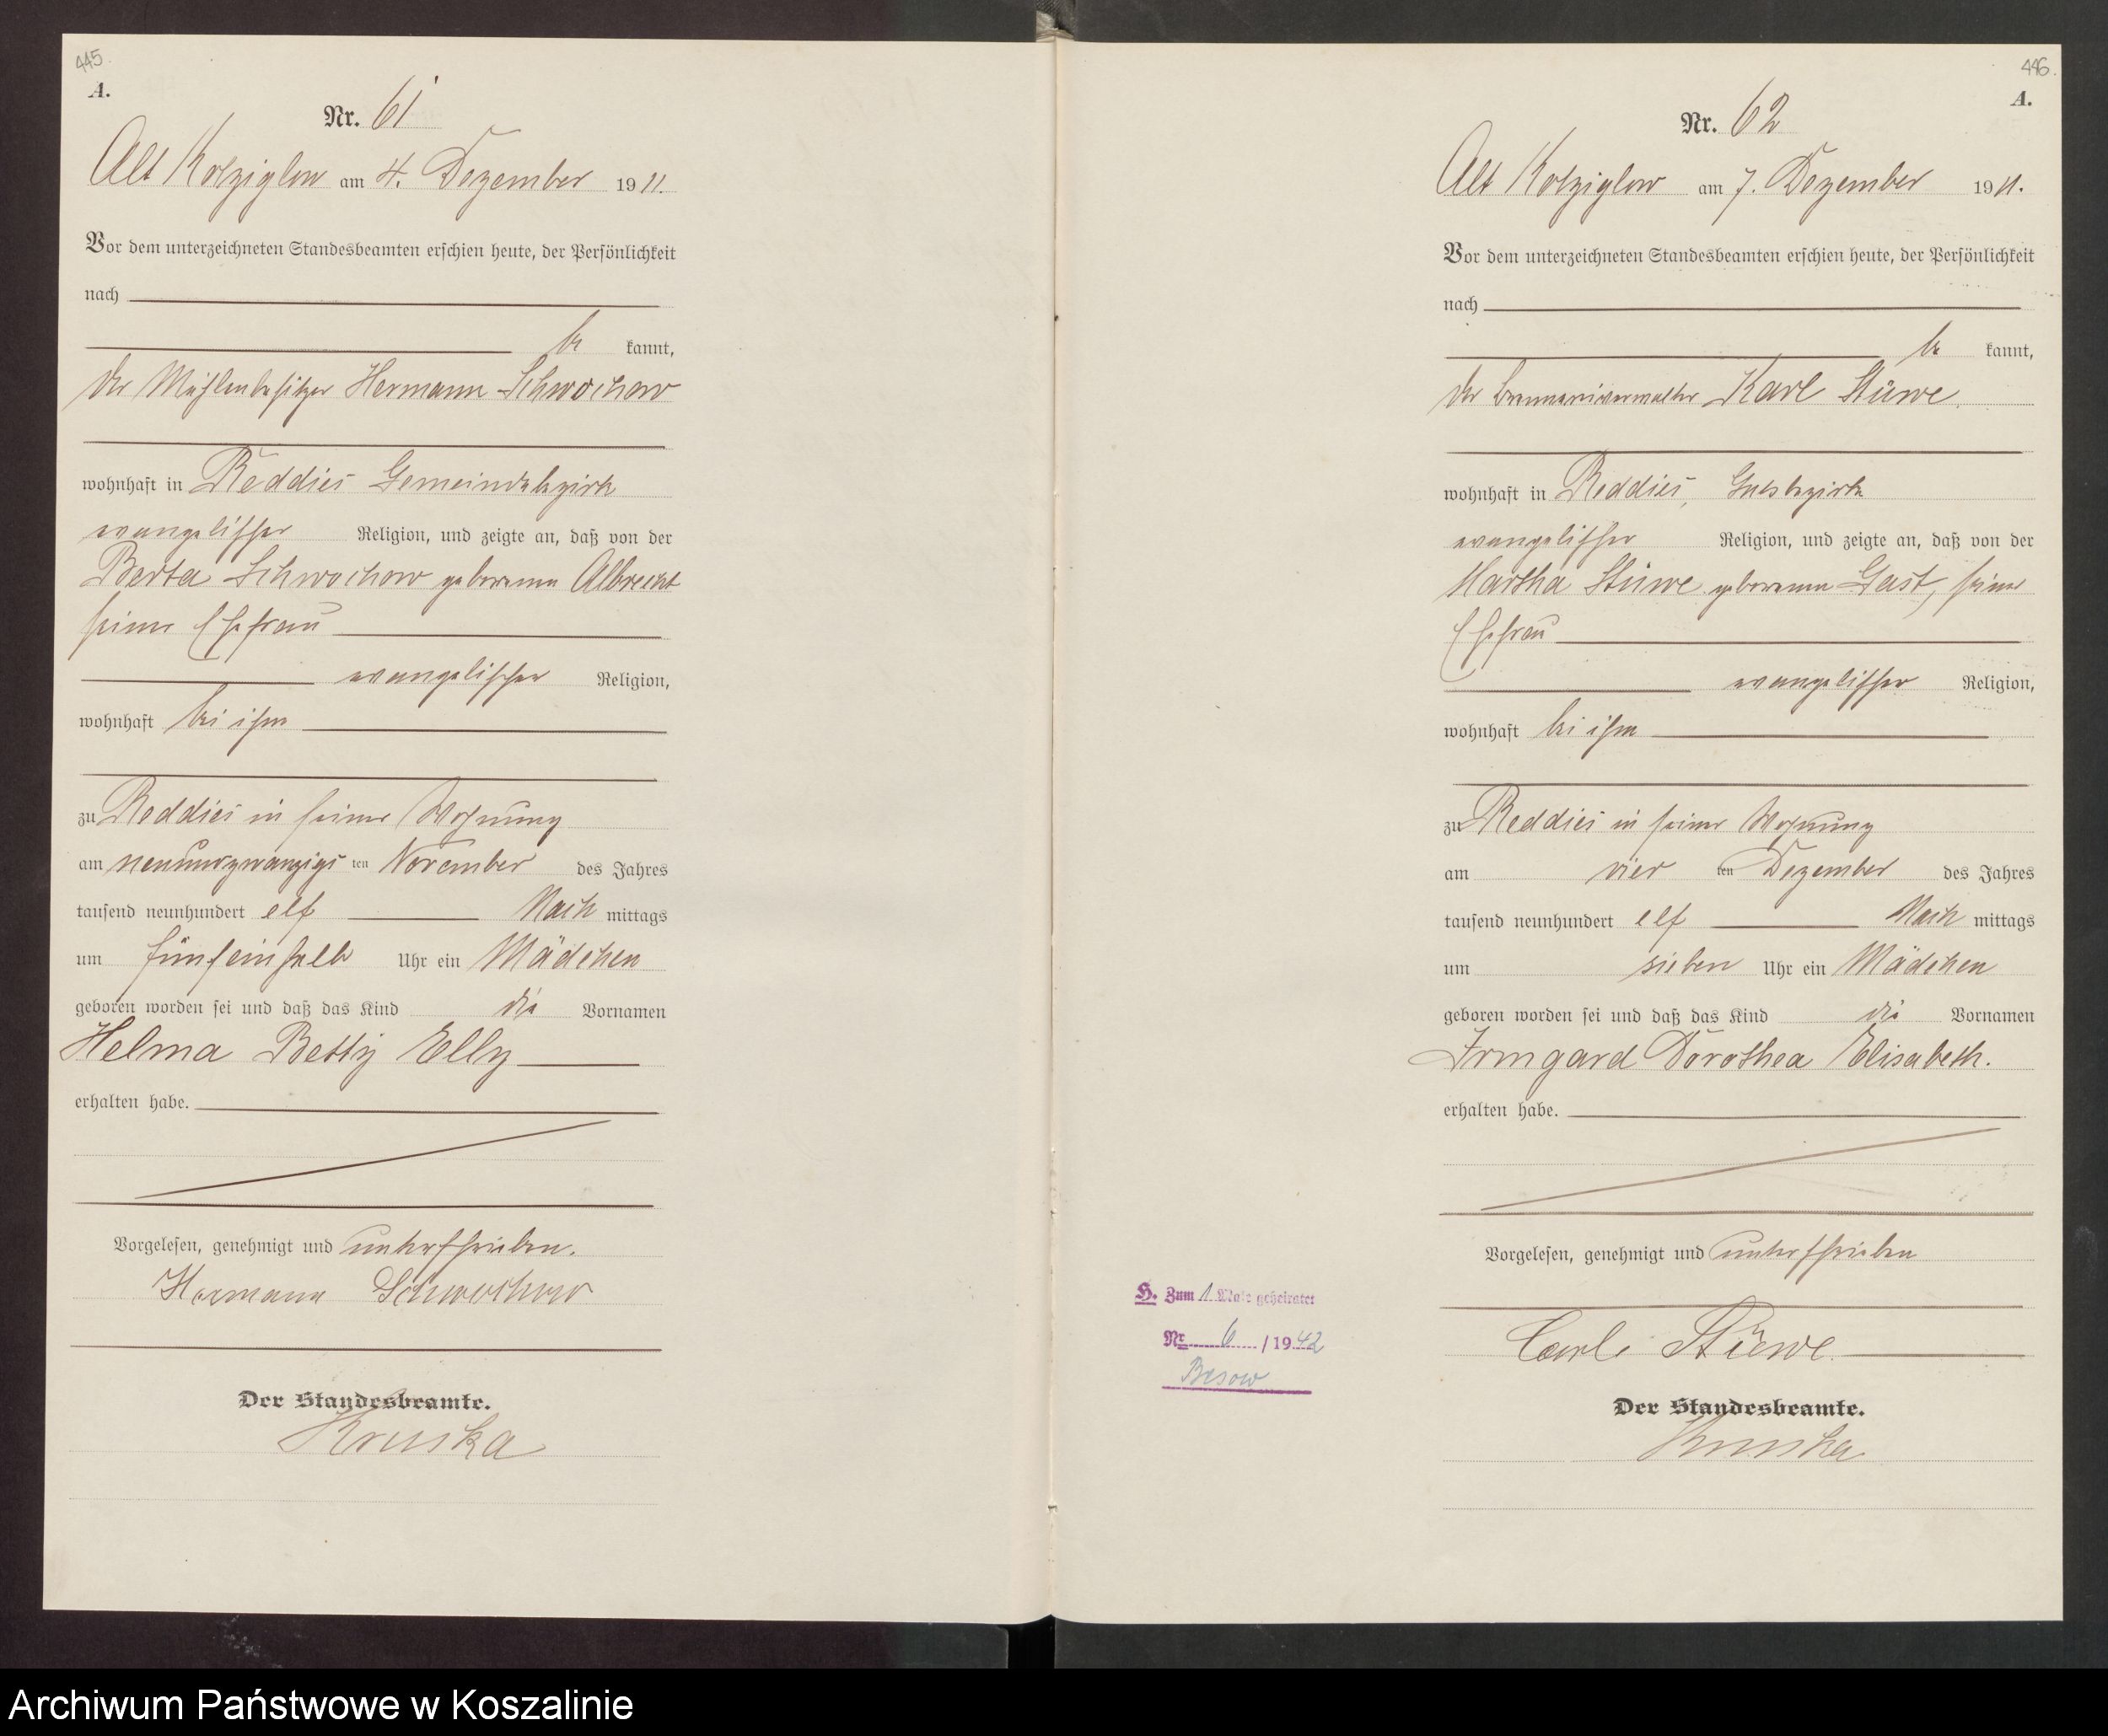 445.
A.
Nr. 61
Alt Kolziglow am 4. Dezember 1911.
Vor dem unterzeichneten Standesbeamten erschien heute, der Persönlichkeit
nach
be kannt,
der Mühlenbesitzer Hermann Schwochow
wohnhaft in Reddies Gemeindebezirk
evangelischer Religion, und zeigte an, daß von der
Berta Schwochow geborenen Albrecht
seiner Ehefrau
evangelischer Religion,
wohnhaft bei ihm
zu Reddies in seiner Wohnung
am neunundzwanzigs ten November des Jahres
tausend neunhundert elf Nach mittags
um fünfeinhalb Uhr ein Mädchen
geboren worden sei und daß das Kind die Vornamen
Helma Betty Elly
erhalten habe.
Vorgelesen, genehmigt und unterschrieben.
Hermann Schwochow
Der Standesbeamte.
Kruska
446.
A.
Nr. 62
Alt Kolziglow am 7. Dezember 1911.
Vor dem unterzeichneten Standesbeamten erschien heute, der Persönlichkeit
nach
be kannt,
der Brennereiverwalter Karl Stüwe
wohnhaft in Reddies, Gutsbezirk
evangelischer Religion, und zeigte an, daß von der
Martha Stüwe geborenen Gast, seiner
Ehefrau
evangelischer Religion,
wohnhaft bei ihm
zu Reddies in seiner Wohnung
am vier ten Dezember des Jahres
tausend neunhundert elf Nach mittags
um sieben Uhr ein Mädchen
geboren worden sei und daß das Kind die Vornamen
Irmgard Dorothea Elisabeth.
erhalten habe.
Vorgelesen, genehmigt und unterschrieben
Carl Stüwe
Der Standesbeamte.
Kruska
H. Zum 1 Male geheiratet
Nr. 6 / 1942
Besow
Archiwum Państwowe w Koszalinie